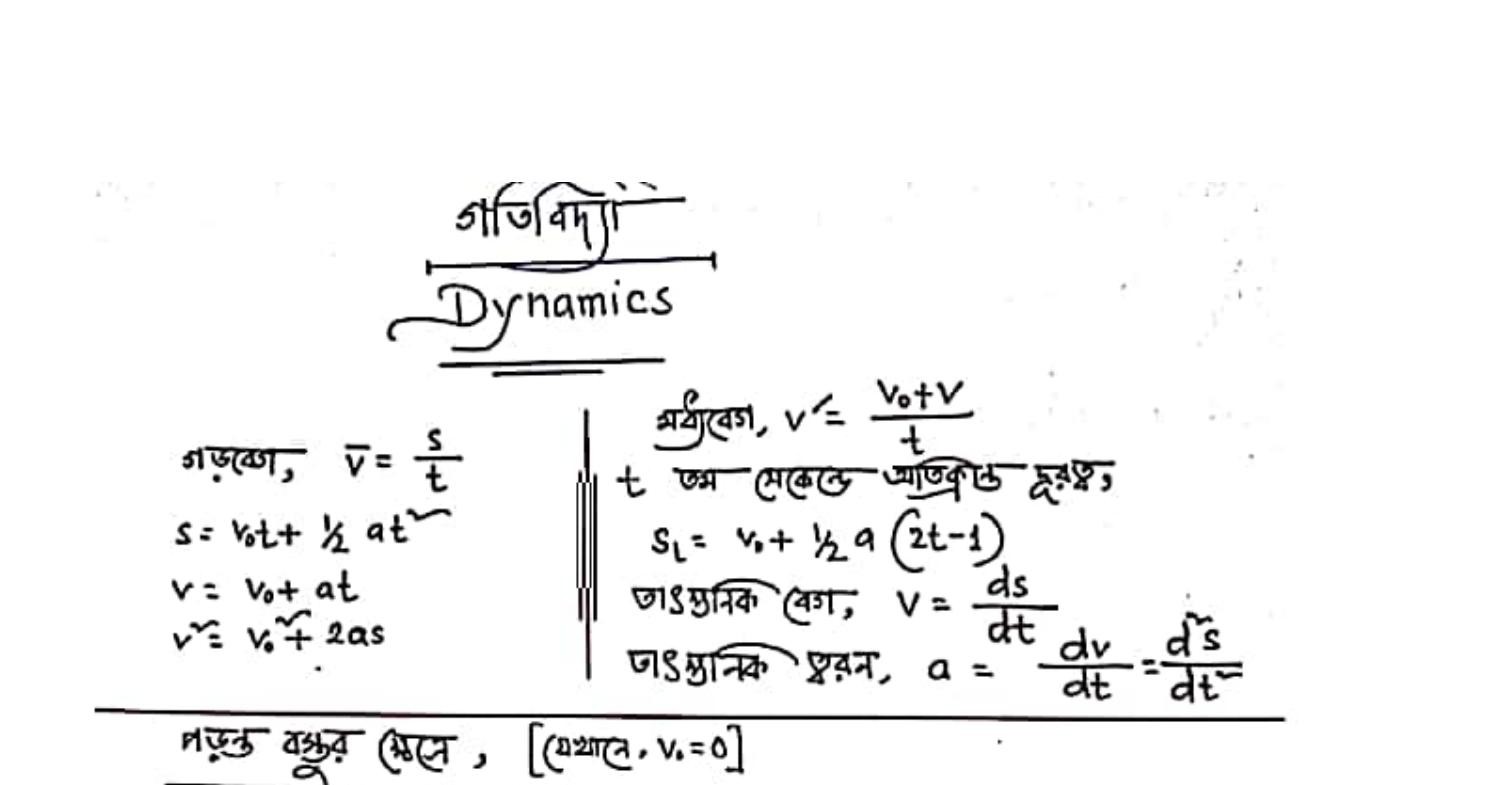 গতিবিদ্যা
Dynamics
গড়বেগ, v̅ = s/t
s = v₀t + ½ at²
v = v₀ + at
v² = v₀² + 2as
মধ্যবেগ, v′ = (v₀+v)/t
t তম সেকেন্ডে অতিক্রান্ত দূরত্ব,
Sₜ = v₀ + ½ a (2t-1)
তাৎক্ষনিক বেগ, v = ds/dt
তাৎক্ষনিক ত্বরন, a = dv/dt = d²s/dt²
পড়ন্ত বস্তুর ক্ষেত্রে, [যেখানে, v₀=0]